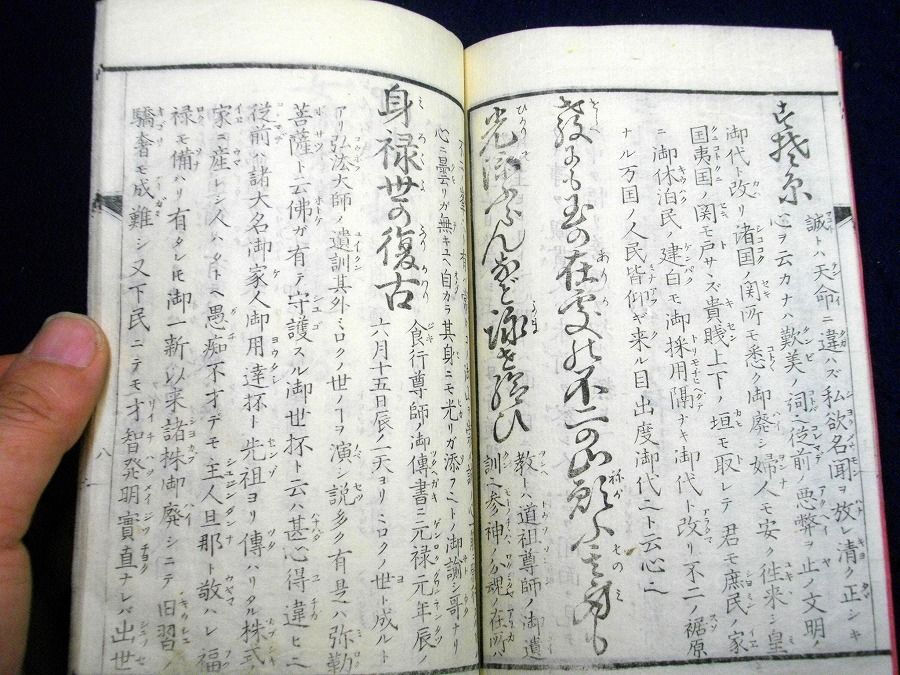 誠トハ天命ニ違ハズ私欲名聞ヲ放レ清ク正シキ
心ヲ云カナハ歎美ノ詞 従前ノ悪弊ヲ止ノ文明ノ
御代ト改リ諸国ノ関所モ悉ク御廃シ婦人モ安ク徃来シ皇
国夷国ノ関モ戸サズ貴賤上下ノ垣モ取レテ君モ庶民ノ家
ニ御休泊民ノ建白モ御採用隔ナキ御代ト改リ不二ノ裾原
ナル万国ノ人民皆仰ギ来ル目出度御代 ト云心
教にも玉の在處は不二の山願ふ其身も
光添ふんなど詠せ給ひ
教トハ道祖尊師ノ御遺
訓ニ参神ノ分魂ノ在所ハ
心ニ曇リガ無キユヘ自カラ其身ニモ光リガ添フ トノ御諭哥ナリ
身禄世の復古
食行尊師ノ御傳書ニ元禄元年辰ノ
六月十五日辰ノ一天ヨリミロクノ世ト成ルト
アリ弘法大師ノ遺訓其外ミロクノ世ノ ヲ演説多ク有是ハ弥勒
菩薩ト云佛ガ有テ守護スル御世抔ト云ハ甚心得違ヒ
従前ハ諸大名御家人御用達抔ト先祖ヨリ傳ハリタル株式
家ニ産レシ人ハタトヘ愚痴不才デモ主人旦那ト敬ハレ福
禄モ備ハリ有タレ モ御一新以来諸株御廃シニテ旧習ノ
驕奢モ成難シ又下民ニテモ才智発明實直ナレバ出世
八